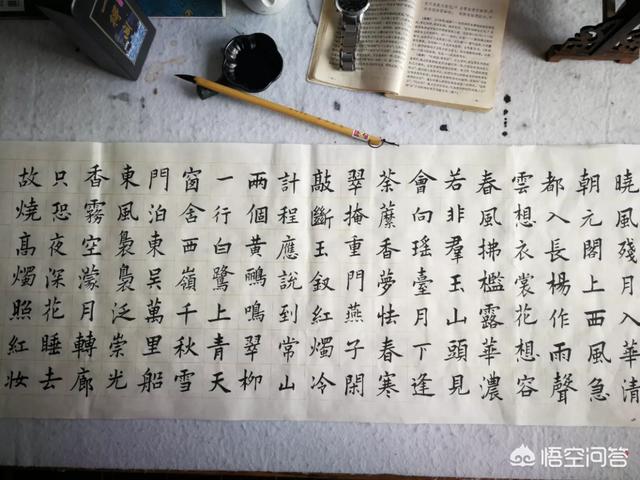 曉風殘月入華清
朝元閣上西風急
都入長楊作雨聲
雲想衣裳花想容
春風拂檻露華濃
若非羣玉山頭見
會向瑤臺月下逢
荼蘼香夢怯春寒
翠掩重門燕子閑
敲斷玉釵紅燭冷
計程應說到常山
兩個黃鸝鳴翠柳
一行白鷺上青天
窗含西嶺千秋雪
門泊東吳萬里船
東風裊裊泛崇光
香霧空濛月轉廊
只恐夜深花睡去
故燒高燭照紅妝
悟空问答